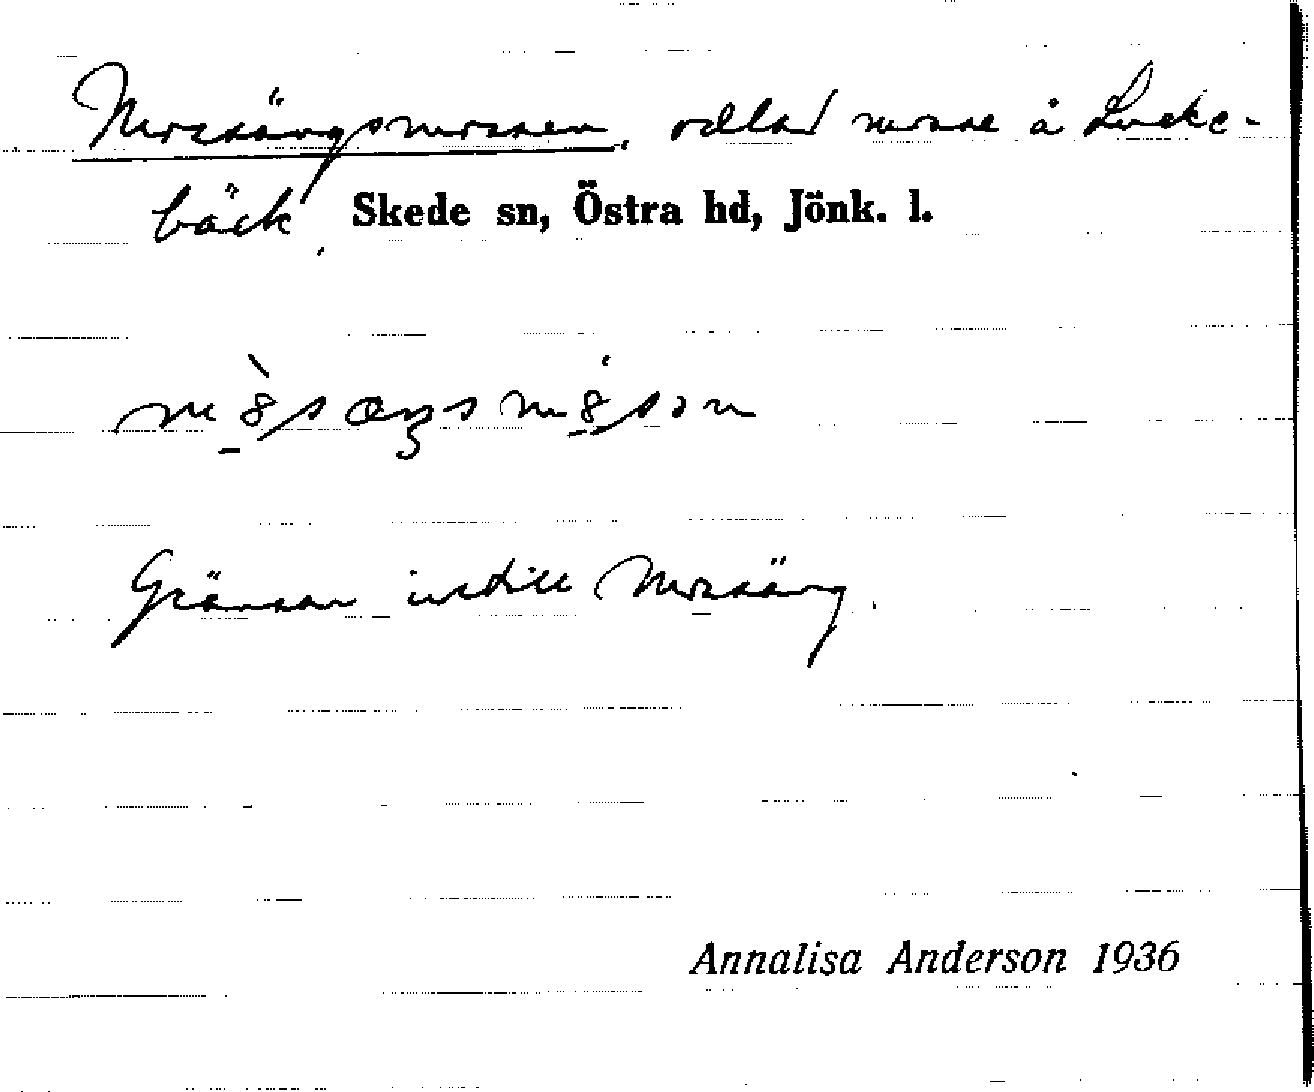 Mossängsmossen, odlad mosse å Lucke-
bäck, Skede sn, Östra hd, Jönk. l.
Gränsar intill Mossäng.
Annalisa Anderson 1936